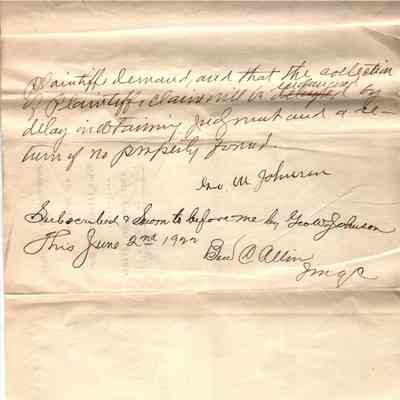 Plaintiffs demand, and that the collection
endangered
of Plaintiffs claim will be delayed by
delay in obtaining Judgment and a re-
turn of no property found.
Geo. W Johnson
Subscribed & Sworn to before me by Geo W Johnson
This June 2nd 1922
Ben C Allin